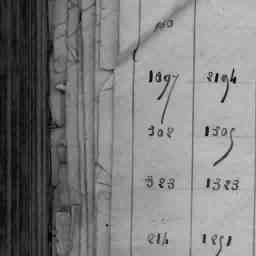 1897 2194
302 1305
323 1323
214 1251